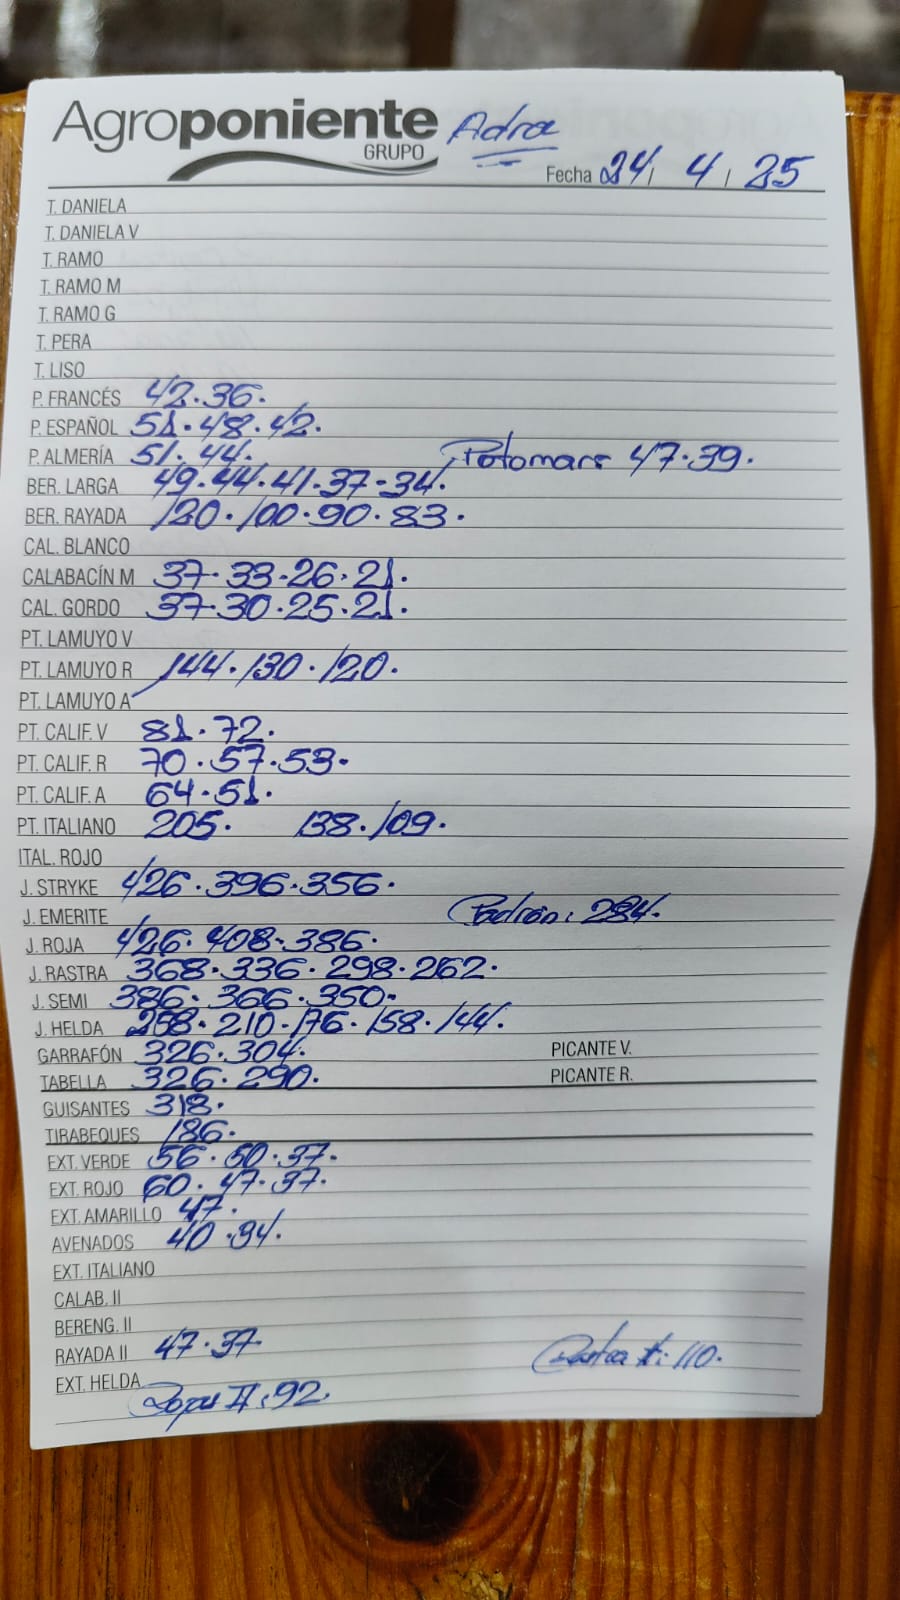 Agroponiente Adra
GRUPO
Fecha 24/ 4 / 25
T. DANIELA
T. DANIELA V
T. RAMO
T. RAMO M
T. RAMO G
T. PERA
T. LISO
P. FRANCÉS 42.36.
P. ESPAÑOL 51.48.42.
P. ALMERÍA 51.44. Potomare 47.39.
BER. LARGA 49.44.41.37-34.
BER. RAYADA 120.100.90.83.
CAL. BLANCO
CALABACÍN M 37.33.26.21.
CAL. GORDO 37.30.25.21.
PT. LAMUYO V
PT. LAMUYO R 144.130.120.
PT. LAMUYO A
PT. CALIF. V 81.72.
PT. CALIF. R 70.57.53.
PT. CALIF. A 64.51.
PT. ITALIANO 205. 138.109.
ITAL. ROJO
J. STRYKE 426.396.356.
J. EMERITE Padrón: 284.
J. ROJA 426.408.386.
J. RASTRA 368.336.298.262.
J. SEMI 386.366.350.
J. HELDA 258.210.176.158.144.
GARRAFÓN 326.304. PICANTE V.
TABELLA 326.290. PICANTE R.
GUISANTES 318.
TIRABEQUES 186.
EXT. VERDE 56.50.37.
EXT. ROJO 60.47.37.
EXT. AMARILLO 47.
AVENADOS 40.34.
EXT. ITALIANO
CALAB. II
BERENG. II
RAYADA II 47.37 110.
EXT. HELDA
II: 92.